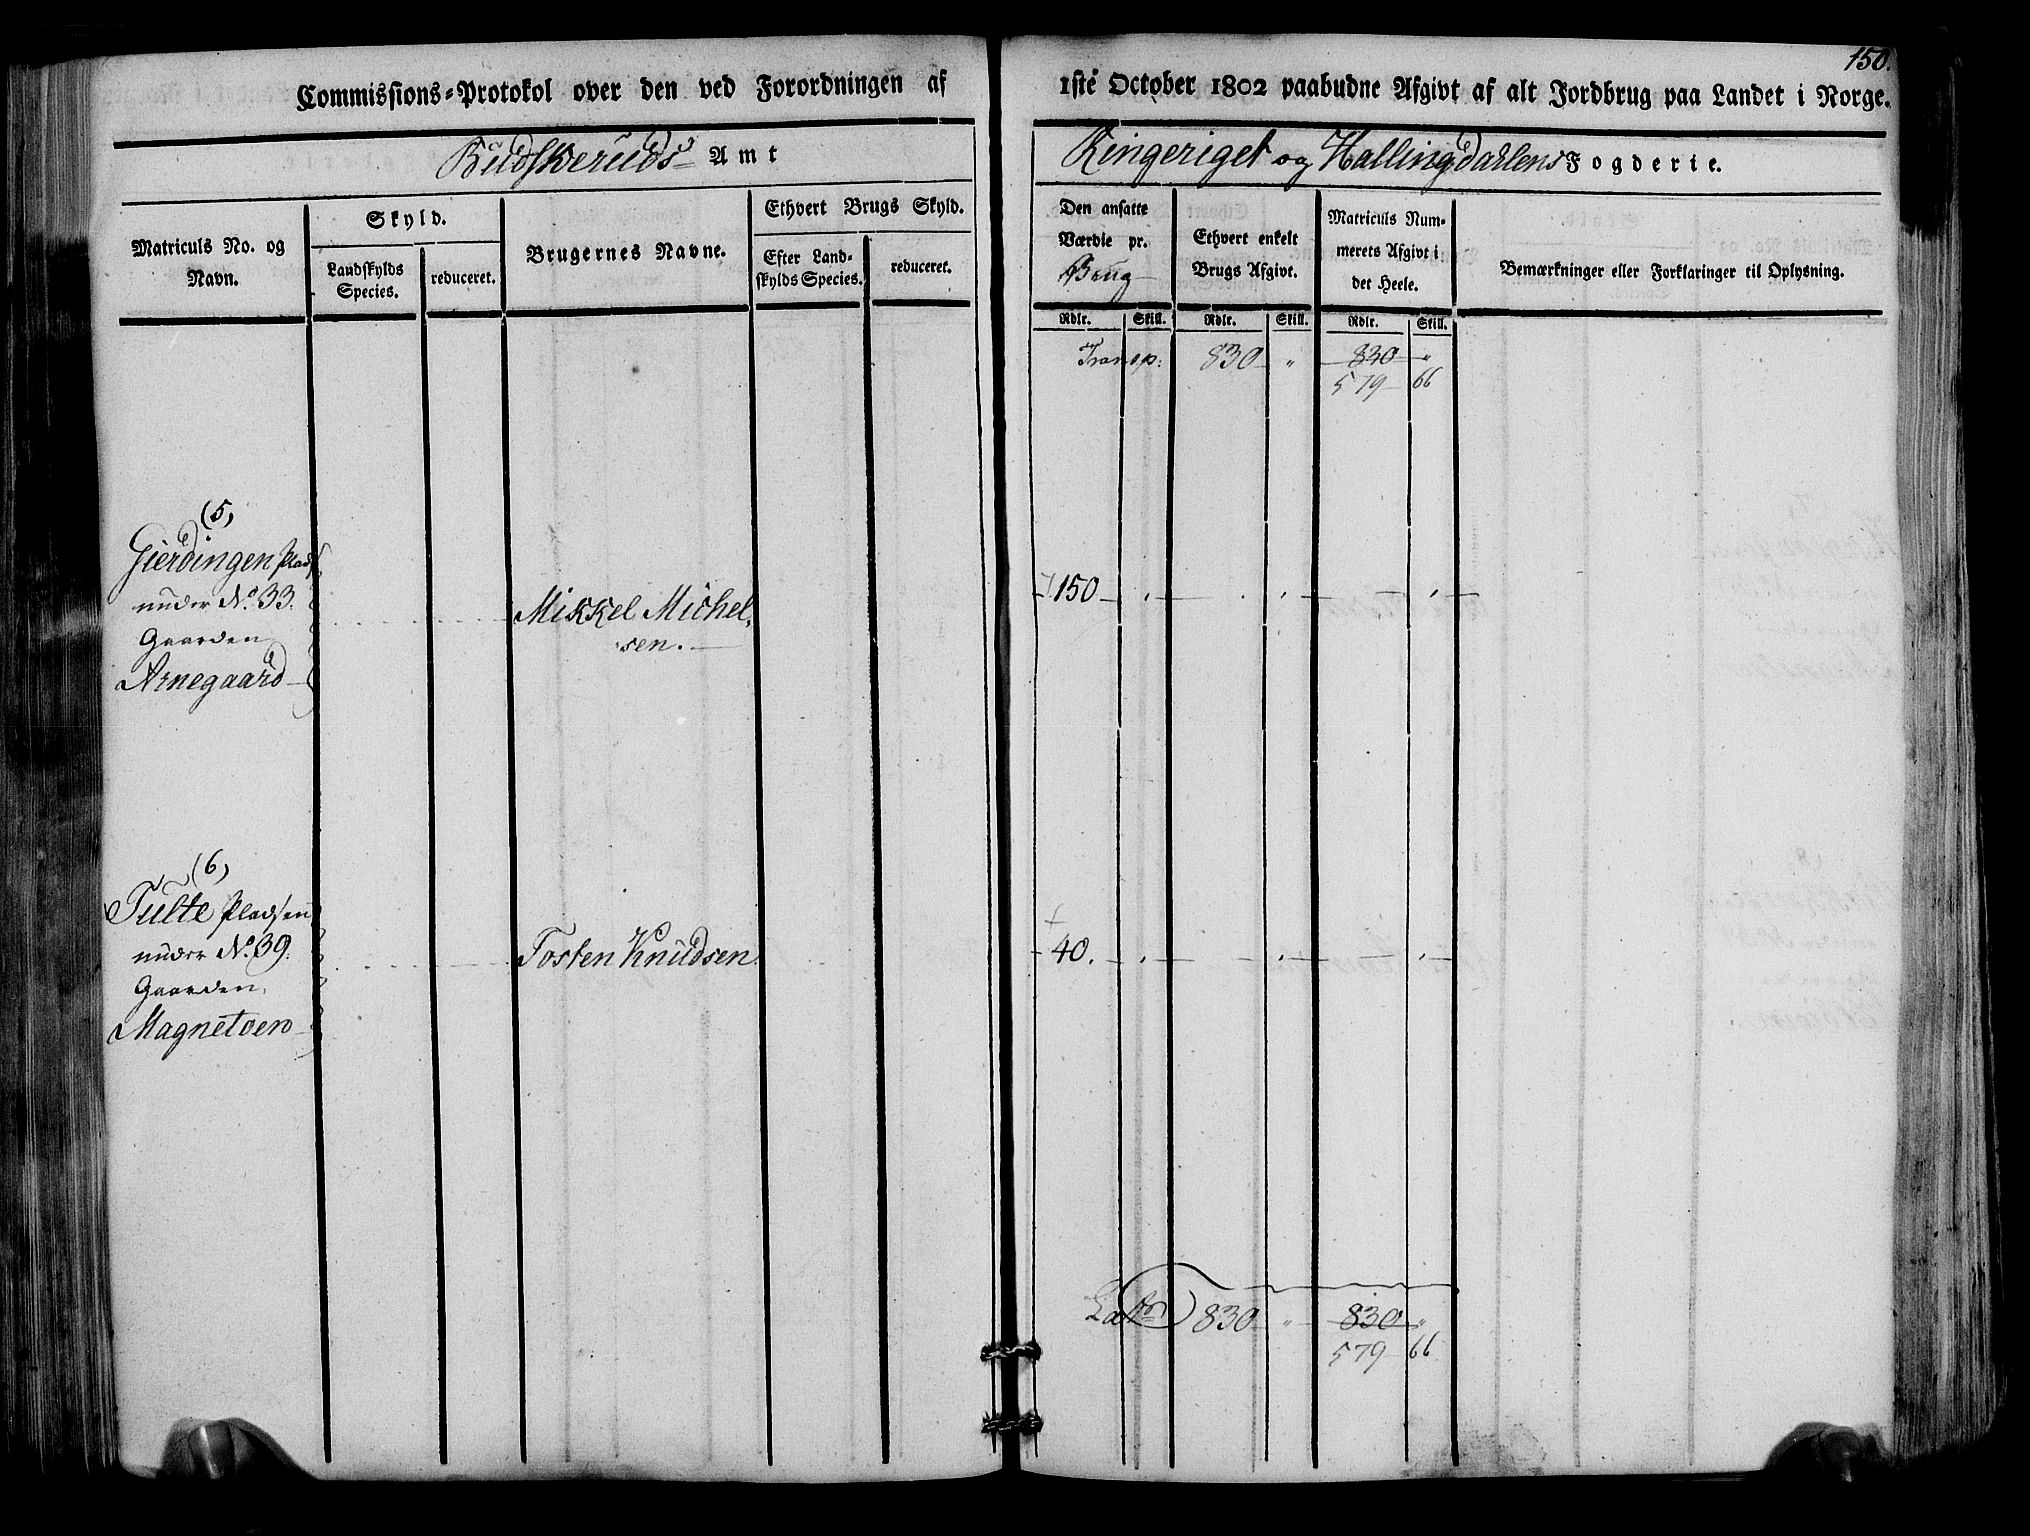 150.
Commissions-Protokol over den ved Forordningen af 1ste October 1802 paabudne Afgivt af alt Jordbrug paa Landet i Norge.
Budskeruds Amt
Ringeriget og Hallingdahlens Fogderie.
Matriculs No. og Navn.
Skyld.
Landskylds Species.
reduceret.
Brugernes Navne.
Ethvert Brugs Skyld.
Efter Landskylds Species.
reduceret.
Den ansatte Værdie pr. Brug
Ethvert enkelt Brugs Afgivt.
Matriculs Nummerets Afgivt i det Heele.
Bemærkninger eller Forklaringer til Oplysning.
Rdlr. Skill. Rdlr. Skill. Rdlr. Skill.
Transp: 830 " 830 "
579 66
(5)
Gierdingen Plads
under No. 33.
Gaarden
Arnegaard
Mikkel Michel-
sen.
150
(6)
Tulte Pladsen
under No. 39.
Gaarden,
Magnetoen
Tosten Knudsen
40.
Latr 830 " 830 "
579 66